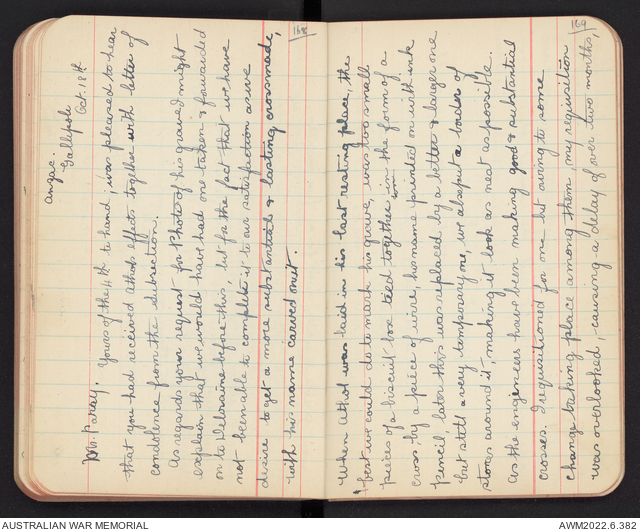 Anzac.
Gallipoli
Oct. 18th
Mr. Parey. Yours of the 4th to hand, was pleased to hear
that you had received Athols effects together with letter of
condolence from the subsection.
As regards your request for Photo of his grave, I might
explain that we would have had one taken & forwarded
on to Deloraine before this, but for the fact that we have
not been able to complete it to our satisfaction as we
desire to get a more substantial & lasting cross made,
with his name carved on it.
168
169
When Athol was laid in his last resting place, the
best we could do to mark his grave, was two small
pieces of a biscuit box tied together in the form of a
cross, by a piece of wire, his name printed on with ink
pencil later this was replaced by a better & larger one
but still a very temporary one, we also put a border of
stones around it, making it look as neat as possible.
As the engineers have been making good & substantial
crosses. I requisitioned for one but owing to some
change taking place among them, my requisition
was overlooked, causing a delay of over two months,
AUSTRALIAN WAR MEMORIAL
AWM2022.6.382